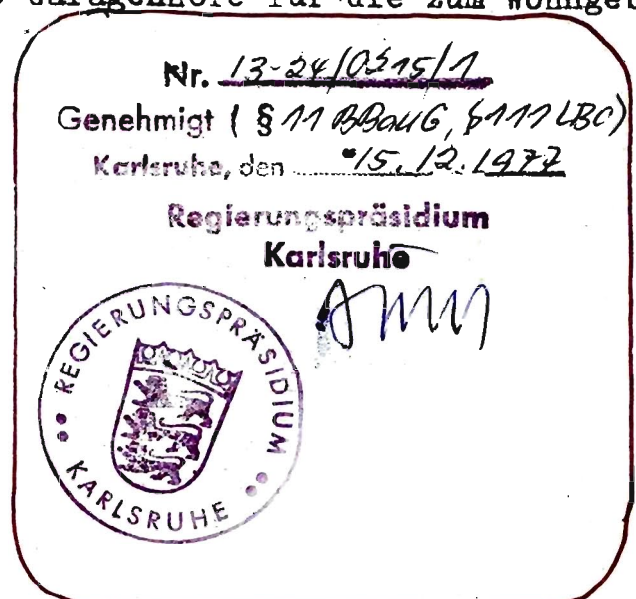 für die zum
Nr. 13-24/0315/1
Genehmigt ( § 11 BBauG, § 111 LBO)
Karlsruhe, den 15.12.1977
Regierungspräsidium
Karlsruhe
REGIERUNGSPRÄSIDIUM
KARLSRUHE